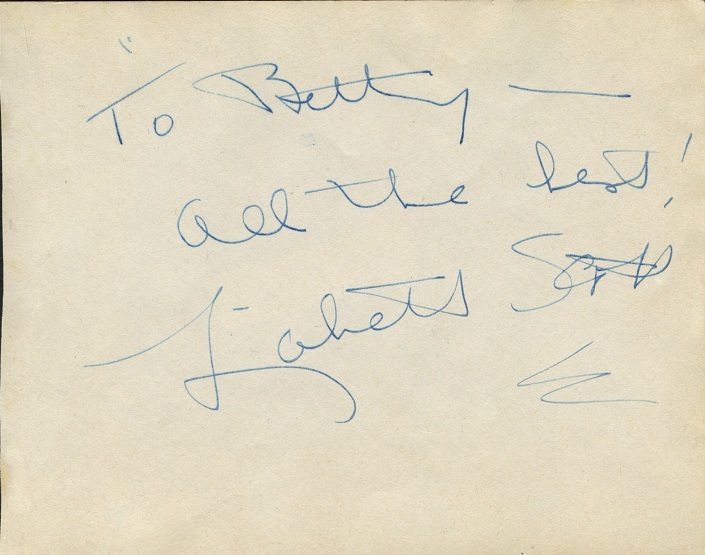 To Betty —
all the best!
Lizabeth Scott